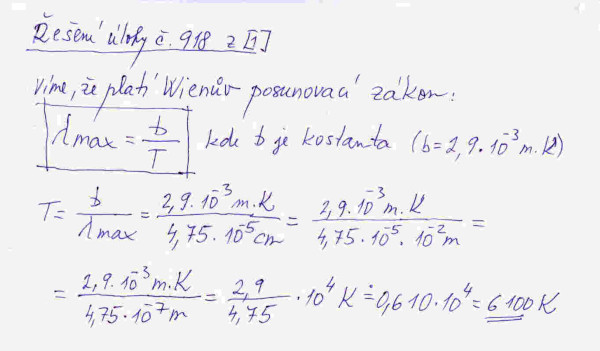 Řešení úlohy č. 918 z [1]
Víme, že platí Wienův posunovací zákon:
λmax = b/T kde b je kostanta (b=2,9·10⁻³ m·K)
T = b/λmax = 2,9·10⁻³ m·K / 4,75·10⁻⁵ cm = 2,9·10⁻³ m·K / 4,75·10⁻⁵·10⁻² m =
= 2,9·10⁻³ m·K / 4,75·10⁻⁷ m = 2,9/4,75 ·10⁴ K ≐ 0,610·10⁴ = 6100 K